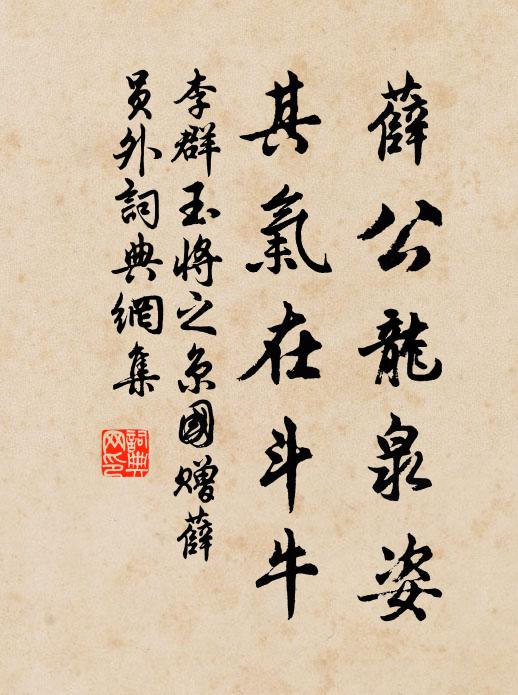 薛公龍泉姿
其氣在斗牛
李群玉將之京國贈薛
員外詞典網集
詞典网印